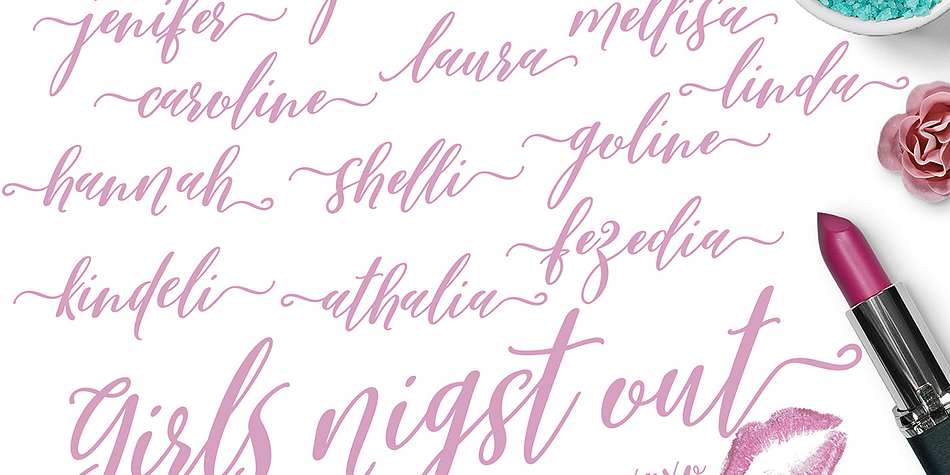 jenifer mellisa
caroline laura linda
hannah shelli goline
kindeli athalia fezedia
Girls nigst out